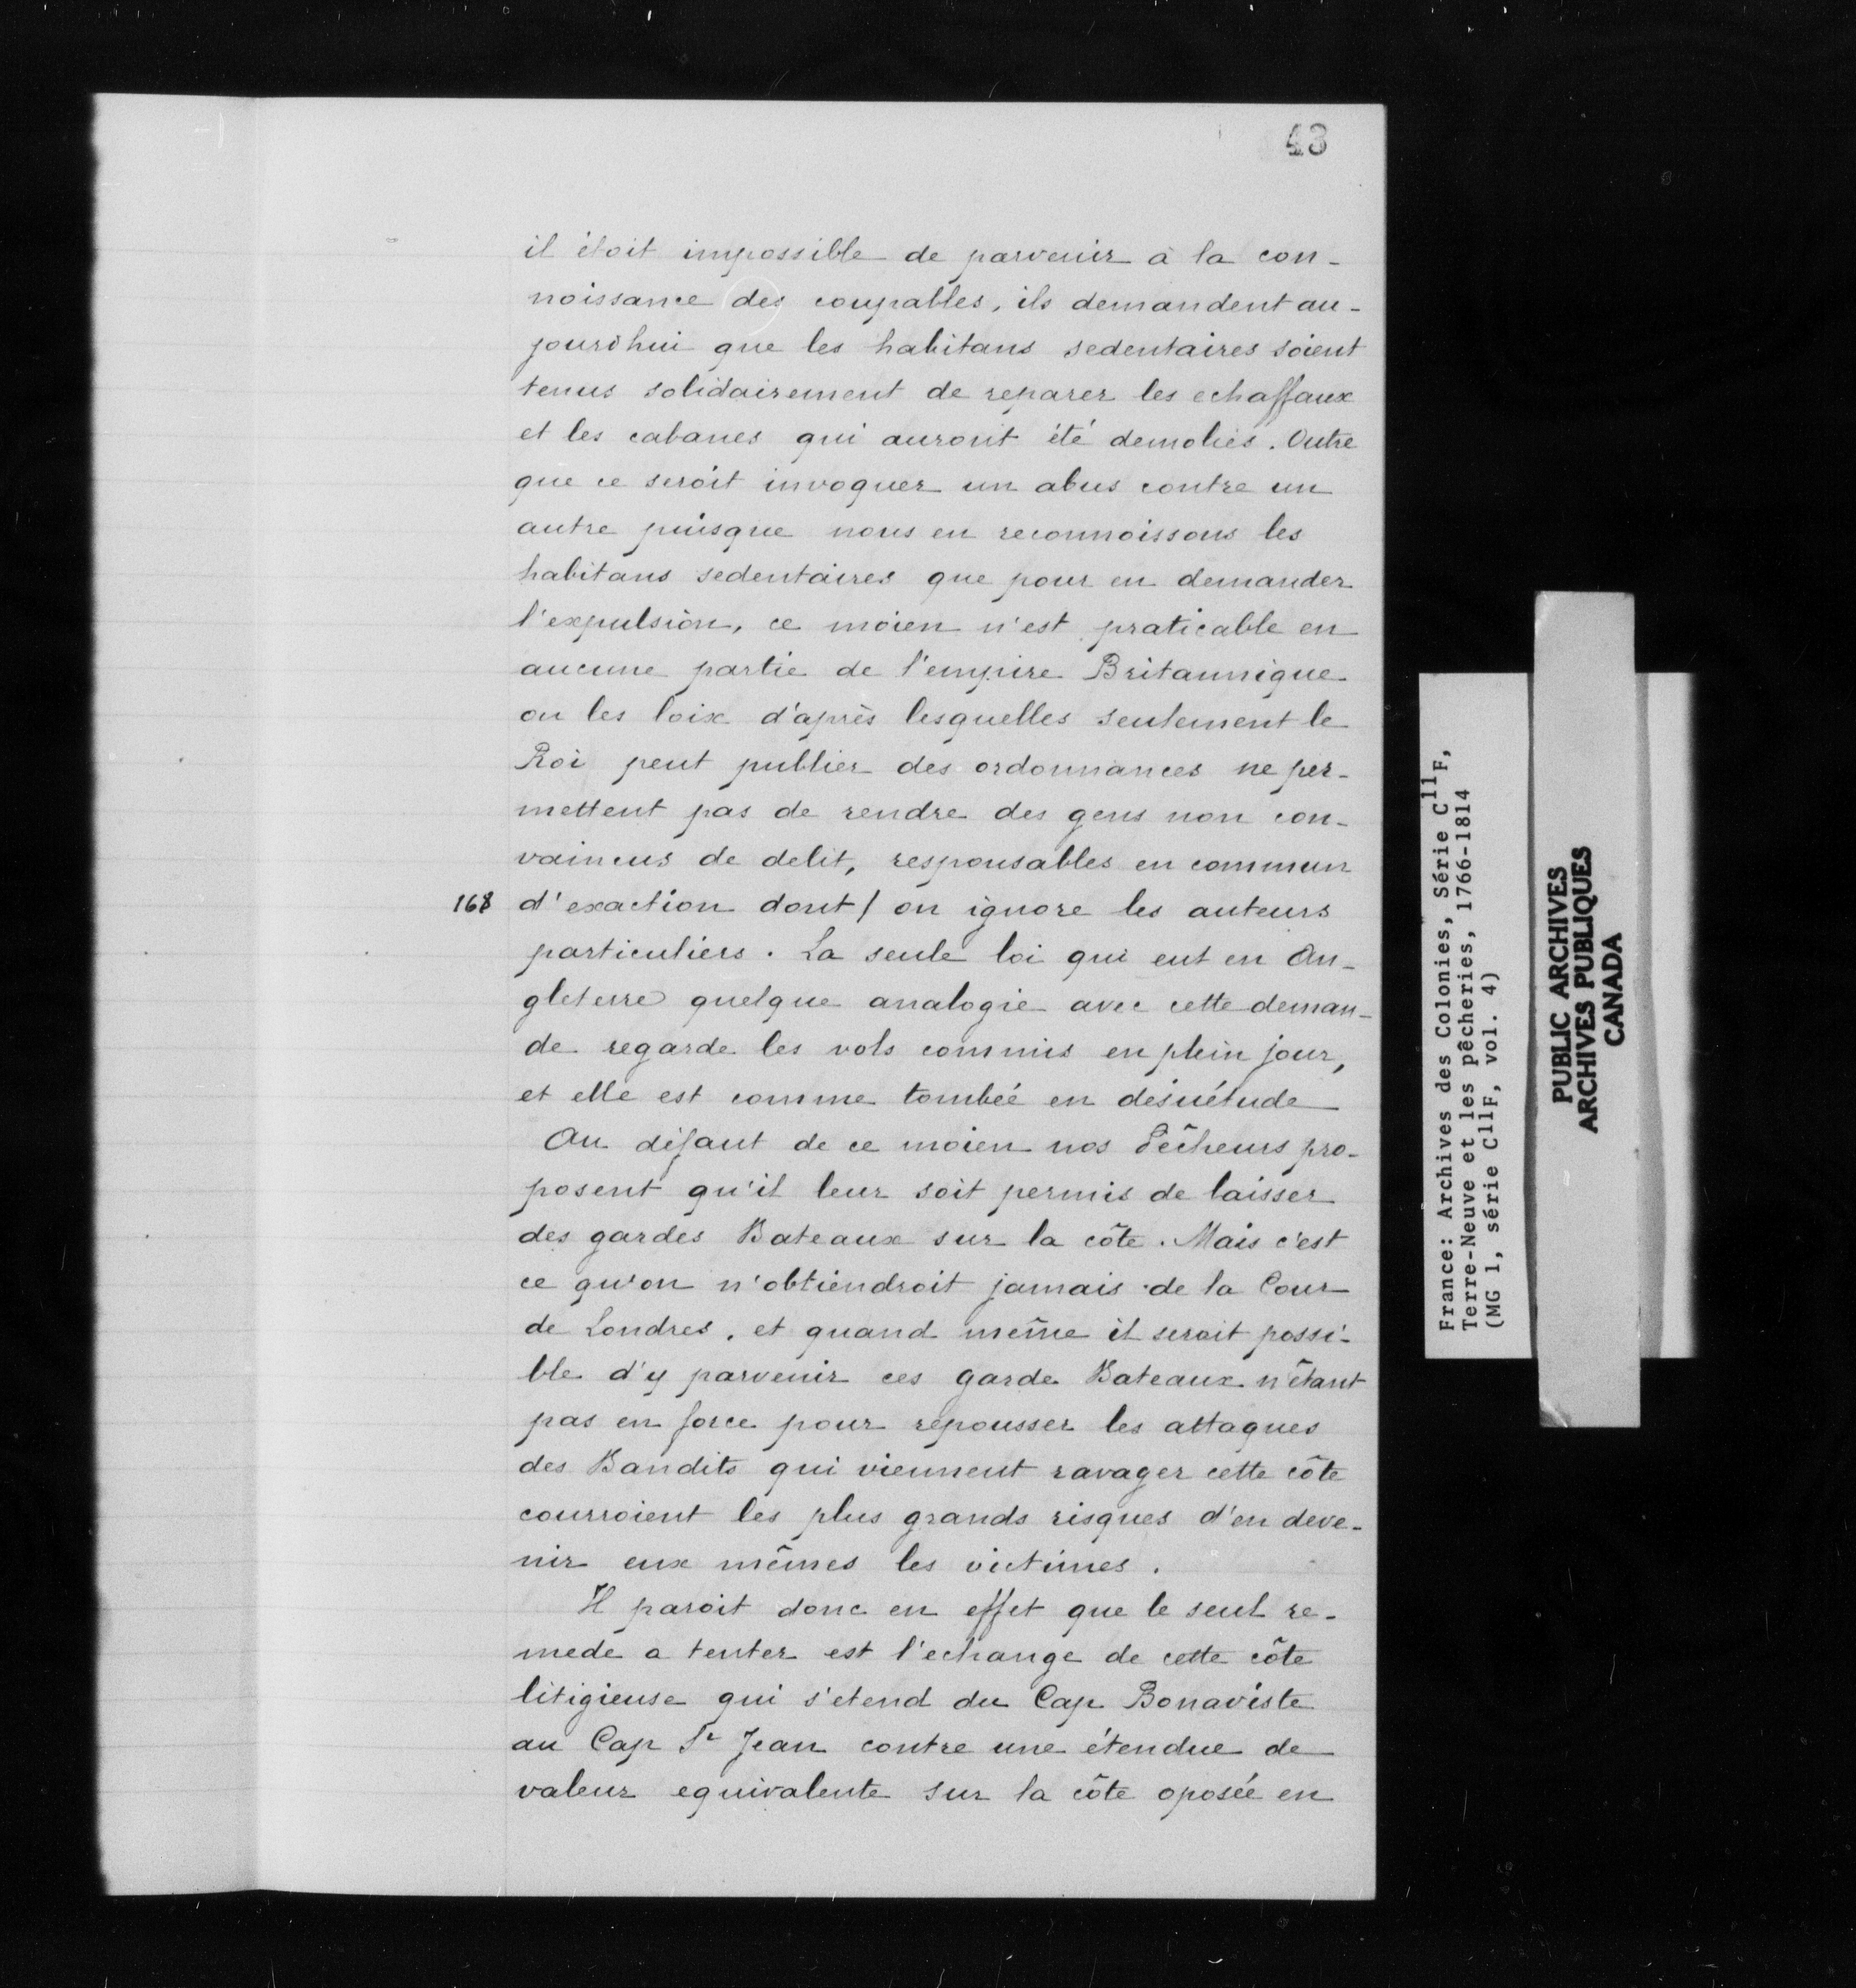 43
il étoit impossible de parvenir à la con-
noissance des coupables, ils demandent au-
jourdhui que les habitans sedentaires soient
tenus solidairement de reparer les echaffaux
et les cabanes qui auront été demolies. Outre
que ce seroit invoquer un abus contre un
autre puisque nous en reconnoissons les
habitans sedentaires que pour en demander
l'expulsion, ce moien n'est praticable en
aucune partie de l'empire Britannique
ou les loix d'après lesquelles seulement le
Roi peut publier des ordonnances ne per-
mettent pas de rendre des gens non con-
vaincus de delit, responsables en commun
168 d'exaction dont / on ignore les auteurs
particuliers. La seule loi qui eut en An-
gleterre quelque analogie avec cette deman-
de regarde les vols commis en plein jour,
et elle est comme tombée en désuétude
Au défaut de ce moien nos Pêcheurs pro-
posent qu'il leur soit permis de laisser
des gardes Bateaux sur la côte. Mais c'est
ce qu'on n'obtiendroit jamais de la Cour
de Londres, et quand même il serait possi-
ble d'y parvenir ces garde Bateaux n'étant
pas en force pour repousser les attaques
des Bandits qui viennent ravager cette côte
courroient les plus grands risques d'en deve-
nir eux mêmes les victimes.
Il paroit donc en effet que le seul re-
mede a tenter est l'echange de cette côte
litigieuse qui s'etend du Cap Bonaviste
au Cap St Jean contre une étendue de
valeur equivalente sur la côte oposée en
France: Archives des Colonies, Série C11F,
Terre-Neuve et les pêcheries, 1766-1814
(MG 1, série C11F, vol. 4)
PUBLIC ARCHIVES
ARCHIVES PUBLIQUES
CANADA